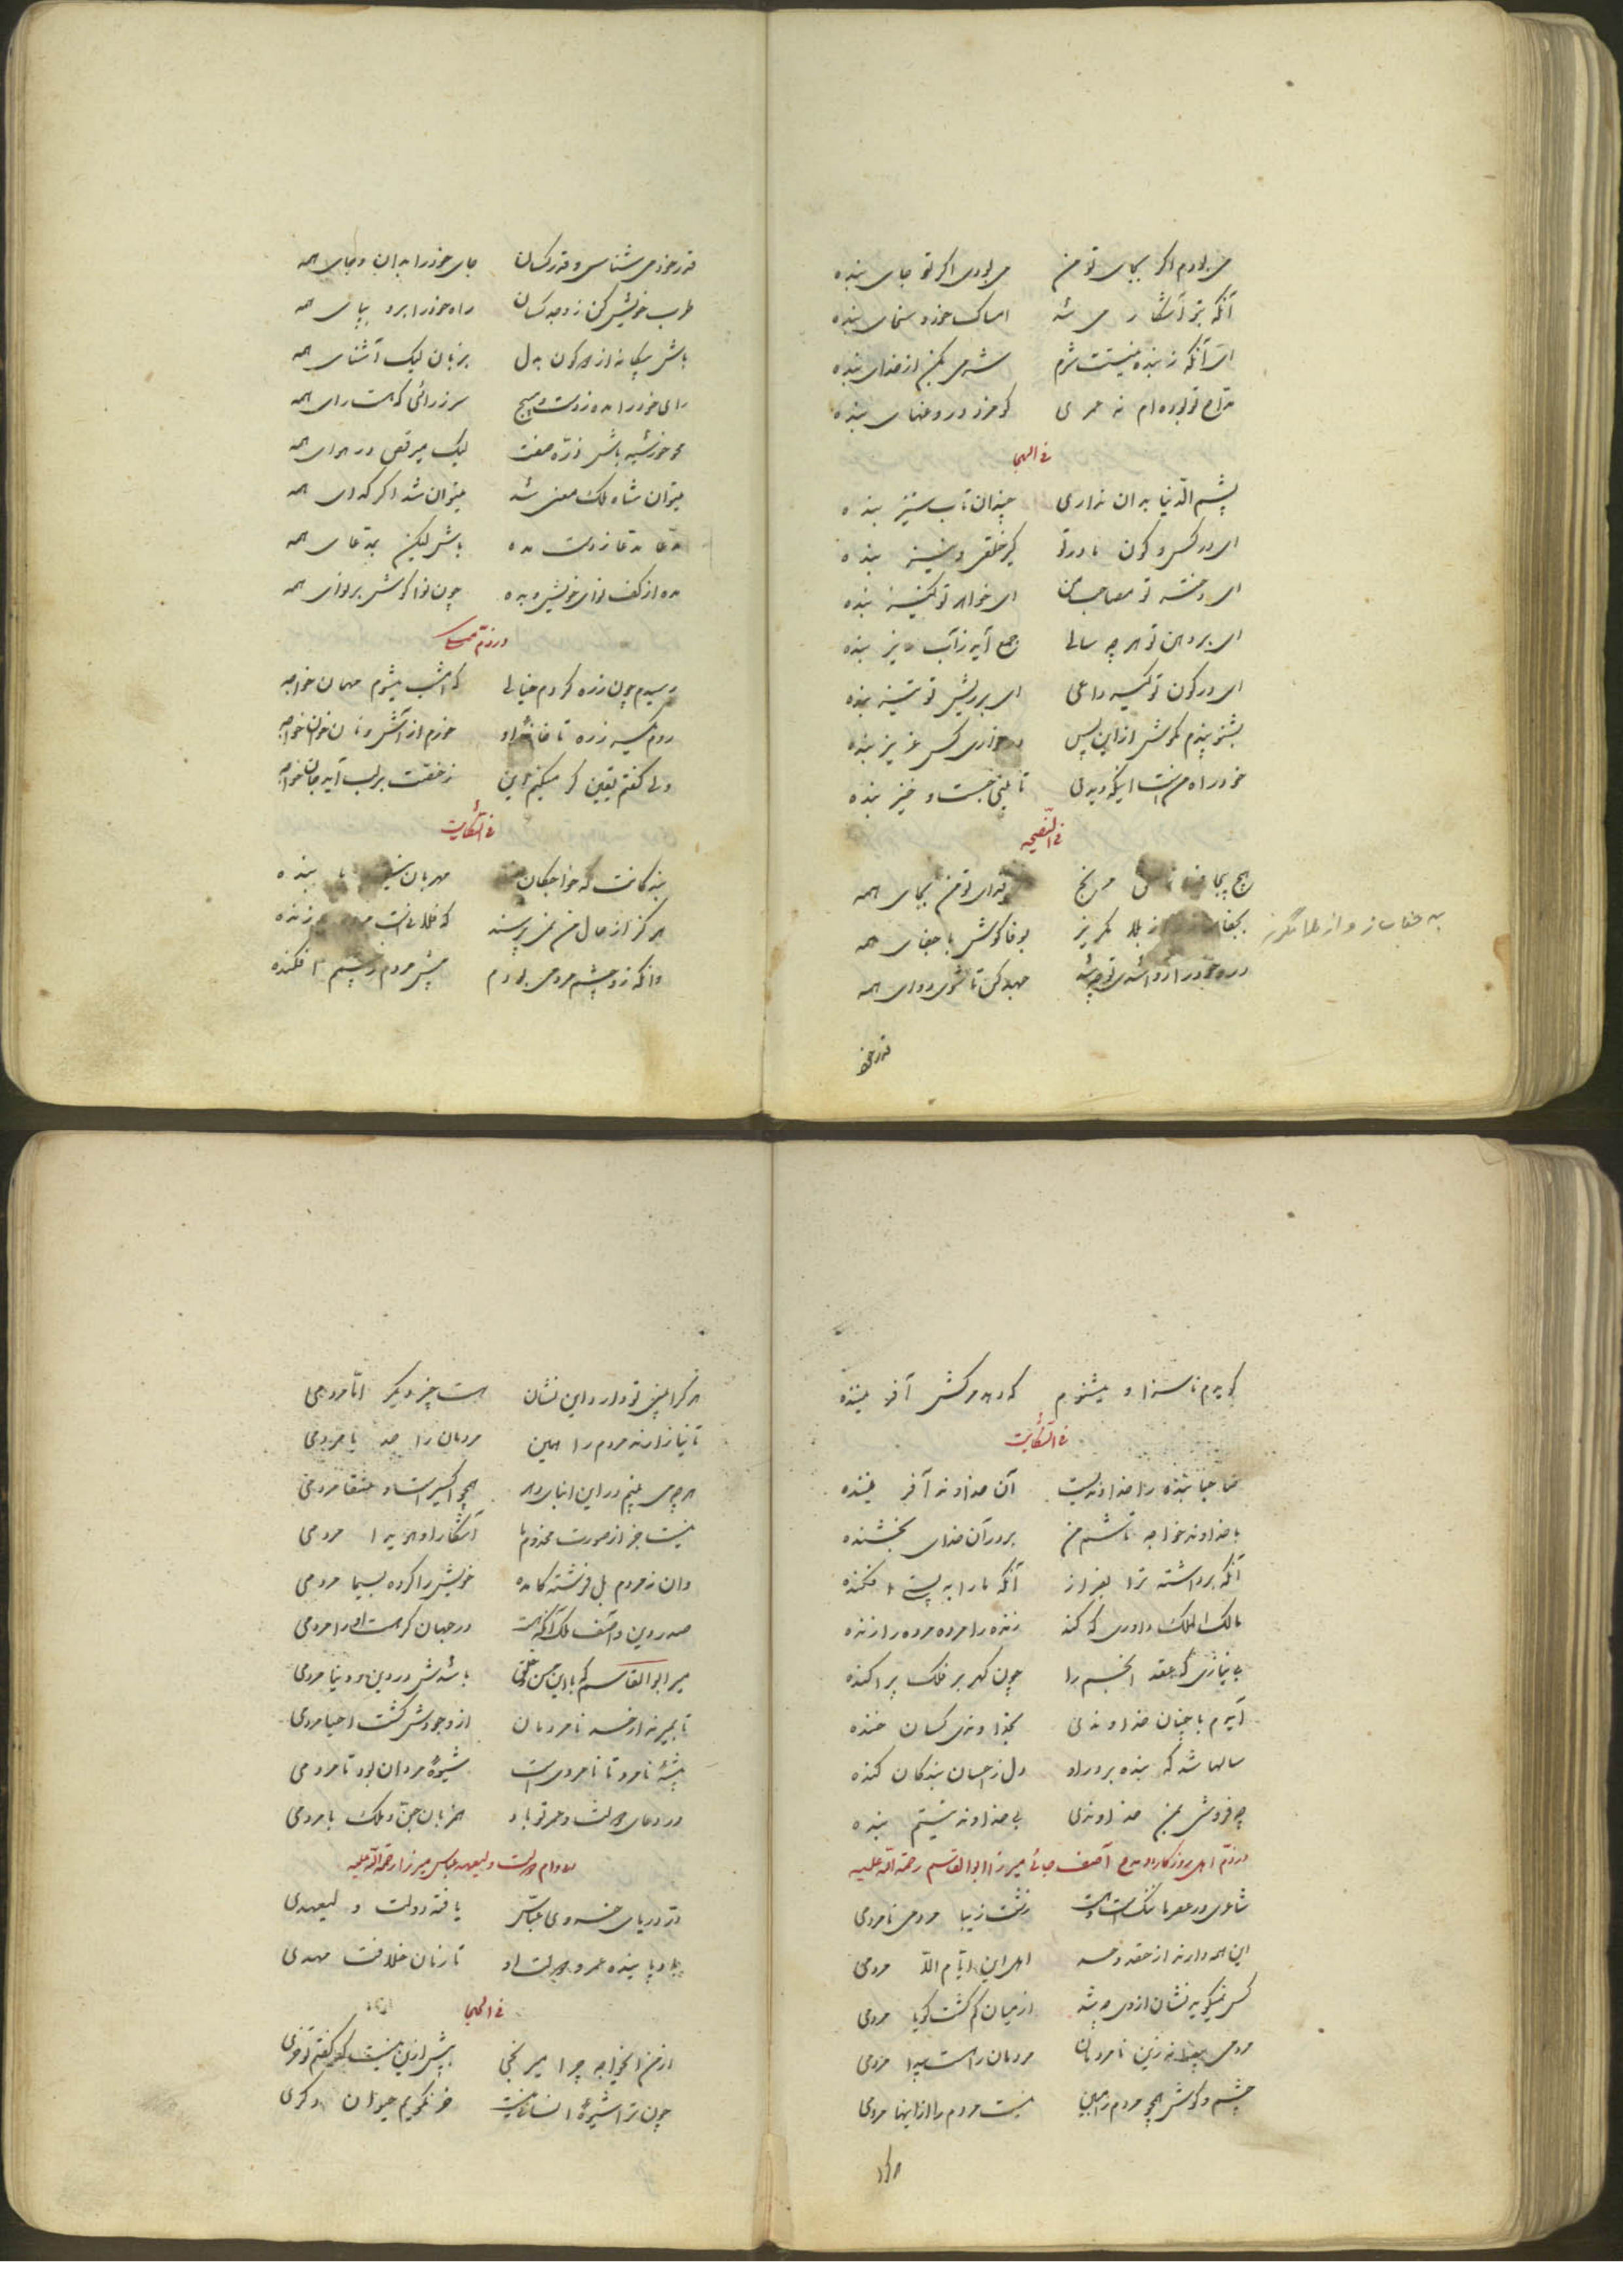 می بودم اگر بجای تو من می بودی اگر تو جای بنده
آنکه بتو آشکار می شد امساک خود و سخای بنده
ای آنکه ز بنده نیستت شرم شرمی بکن از خدای بنده
مداح تو بوده ام نه عمری کو مزد دروغهای بنده
فی الهجا
پشم الدنیا بدان نداری چندان تاب ستیز بنده
ای در کس و کون مادر تو کیر خلقی و نیز بنده
ای تو مصاحب من ای خواهر تو کنیز بنده
ای بر دهن تو هر چه سالی جمع آید ز آب بنده
ای در کون تو کیسه داعی ای بر ریش تو تیز بنده
بشنو پندم بکوش ازین پس در خواری کس عزیز بنده
خود راه منست اینکه دیدی تا بینی جست و خیز بنده
فی النصیحه
هیچ بیجا مرنج قدای تو من بجای همه
بجفا مگریز بوفا کوش با جفای همه
درد خود را دوا شدی تو چه شد جهد کن تا شوی دوای همه
به جفا ساز و از بلا مگریز
قدر خود
قدر خود می شناس و قدر کسان جای خود را بدان و جای همه
طرب خویش کن ز وجد کسان راه خود را برو بپای همه
باش بیگانه از همه کون بدل بزبان لیک آشنای همه
رای خود را مده ز دست و مسیح سر ز رائی که هست رای همه
محو خورشید باش ذره صفت لیک میرقص در هوای همه
میتوان شاه ملک معنی شد میتوان شد اگر گدای همه
مدعا مدعا ز دست مده باش لیکن بمدعای همه
مده از کف نوای خویش و بده چون نوا گوش بر نوای همه
در ذم
رسیدم چون زره کردم خیالی که امشب میشوم مهمان خواجه
روم یکسر ز ره تا خانه او خورم از آش و نان خوان خواجه
ولی گفتم یقین گر میکنم این ز خفت بر لب آید جان خواجه
فی الشکایت
بندگانت که خواجگان مهربان با بنده
هرگز از حال من نمی پرسند که فلانیست مرده زنده
وانکه زو چشم مردمی بودم پیش مردم ز چشم افکنده
گویدم ناسزا و میشنوم که دهد مرکش آفریننده
فی الشکایت
صاحبا بنده را خداوندیست آن خداوند آفریننده
با خداوند خواجه تاشم من برد آن خدای بخشنده
آنکه برداشته ترا بفراز آنکه ما را به پستی افکنده
مالک الملک داوری که کند زنده را مرده مرده را زنده
بی نیازی که عقد انجم را چون گهر بر فلک پراکنده
آیدم با چنان خداوندی بخداوندی کسان خنده
سالها شد که بنده پرور او دل ز احسان بندگان کنده
چه فروشی بمن خداوندی بی خداوند نیستم بنده
در ذم اهل روزگار و مدح آصف جائی میرزا ابوالقاسم رحمة الله علیه
شاعری در عصر ما ننگ است زشت زیبا مردمی نامردمی
این همه دارند از حقد و حسد اهل این ایام الا مردمی
کس نمیگوید نشان از وی چه شد از میان کم گشت گویا مردمی
مردمی پیدا نه زین نامردمان مردمان راهست پیدا مردمی
چشم و گوش همچو مردم را مبین نیست مردم را از اینها مردمی
هر کرا
هر کرا بینی تو دارد این نشان هست چیز دیگر اما مردمی
تا نیازارند مردم را همین مردمان را صد با مردمی
هر چه می بینم در این ابنای دهر همچو اکسیر است و عنقا مردمی
نیست جز از صورت مخدوم ما آشکارا و هویدا مردمی
وان نه مردم بل فرشته کامده خویش را کرده بسیما مردمی
صدر دین و آصف ملک آنکه هست در جهان گر هست او را مردمی
میر ابوالقاسم که با این حسن خلق باشدش در دین و دنیا مردمی
تا بمیرند از حسد نامردمان از وجودش گشت احیا مردمی
پیشه نامرد تا نامردی است شیوه مردان بود تا مردمی
در دعای دولت و عمر تو باد همزبان جن و ملک با مردمی
دوام دولت ولیعهد عباس میرزا رحمة الله علیه
در دریای خسروی عباس یافته دولت ولیعهدی
باد پاینده عمر و دولت او تا زمان خلافت مهدی
فی الهجا
از من ایخواجه چرا میرنجی پیش ازین نیست که گفتم تو خری
چون ترا شیوه انسانی نیست خر نگویم حیوان دگری